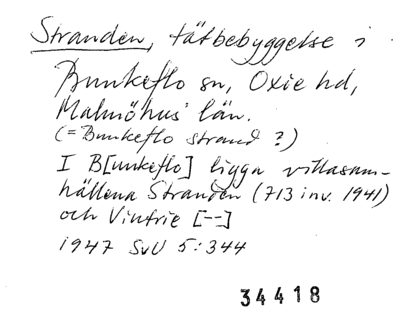 Stranden, tätbebyggelse i
Bunkeflo sn, Oxie hd,
Malmöhus län.
(= Bunkeflo strand ?)
I B[unkeflo] ligga villasam-
hällena Stranden (713 inv. 1941)
och Vintrie [--]
1947 SvU 5:344
34418